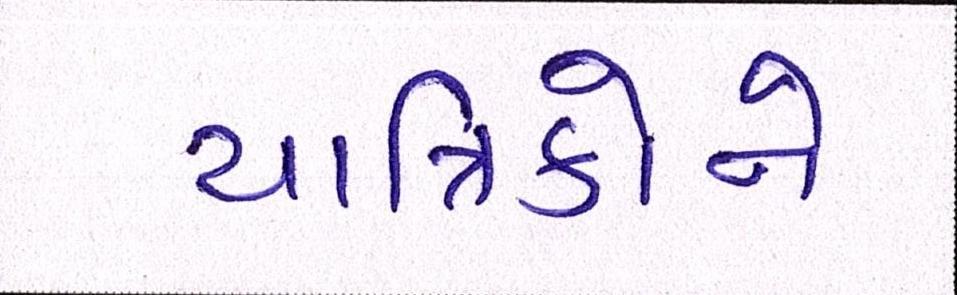 યાત્રિકોને